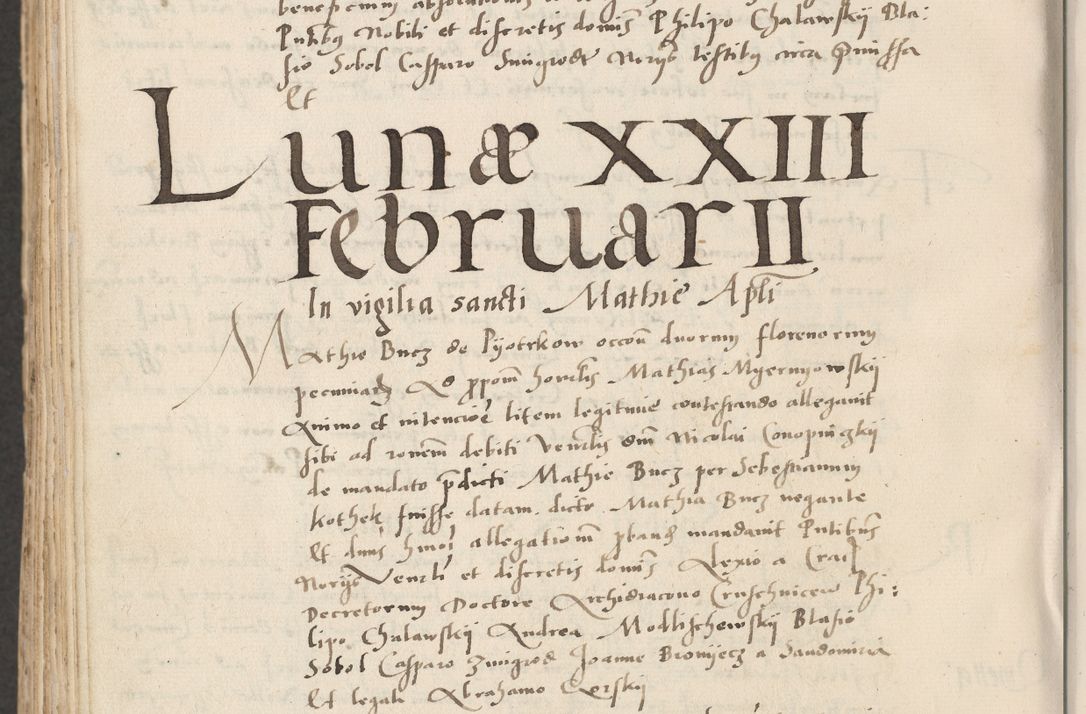 Pntibus Nobili et discretis dominis Philipo Chalawskij Bla:
sio Sobol Casparo Smigrodt Norijs testibus circa premissa
Et
Lunæ XXIII
FebruarII
In vigilia sancti Mathie Apli
Mathie Bucz de Pyotrkow occoum duorum florenorum
pecuniarum Ad propom honorlis Mathias Myernyowskij
Animo et intencione litem legitime contestando allegavit
sibi ad ronem debiti Venerlis dni Nicolai Conopniczkij
de mandato predicti Mathie Bucz per Sebestianum
kothek fuisse datam. dicto Mathia Bucz negante
Et dnus hmoi allegationem probandam mandavit Pntibus
Norijs Venerli et discretis dominis Alexio a
Decretorum Doctore Archidiacono Cruschuicen Phi:
lipo Chalawskij Andrea Modlischewskij Blasio
Sobol Casparo Zmigrod Joanne Bronijecz a Sandomiria
Et legali Abrahamo